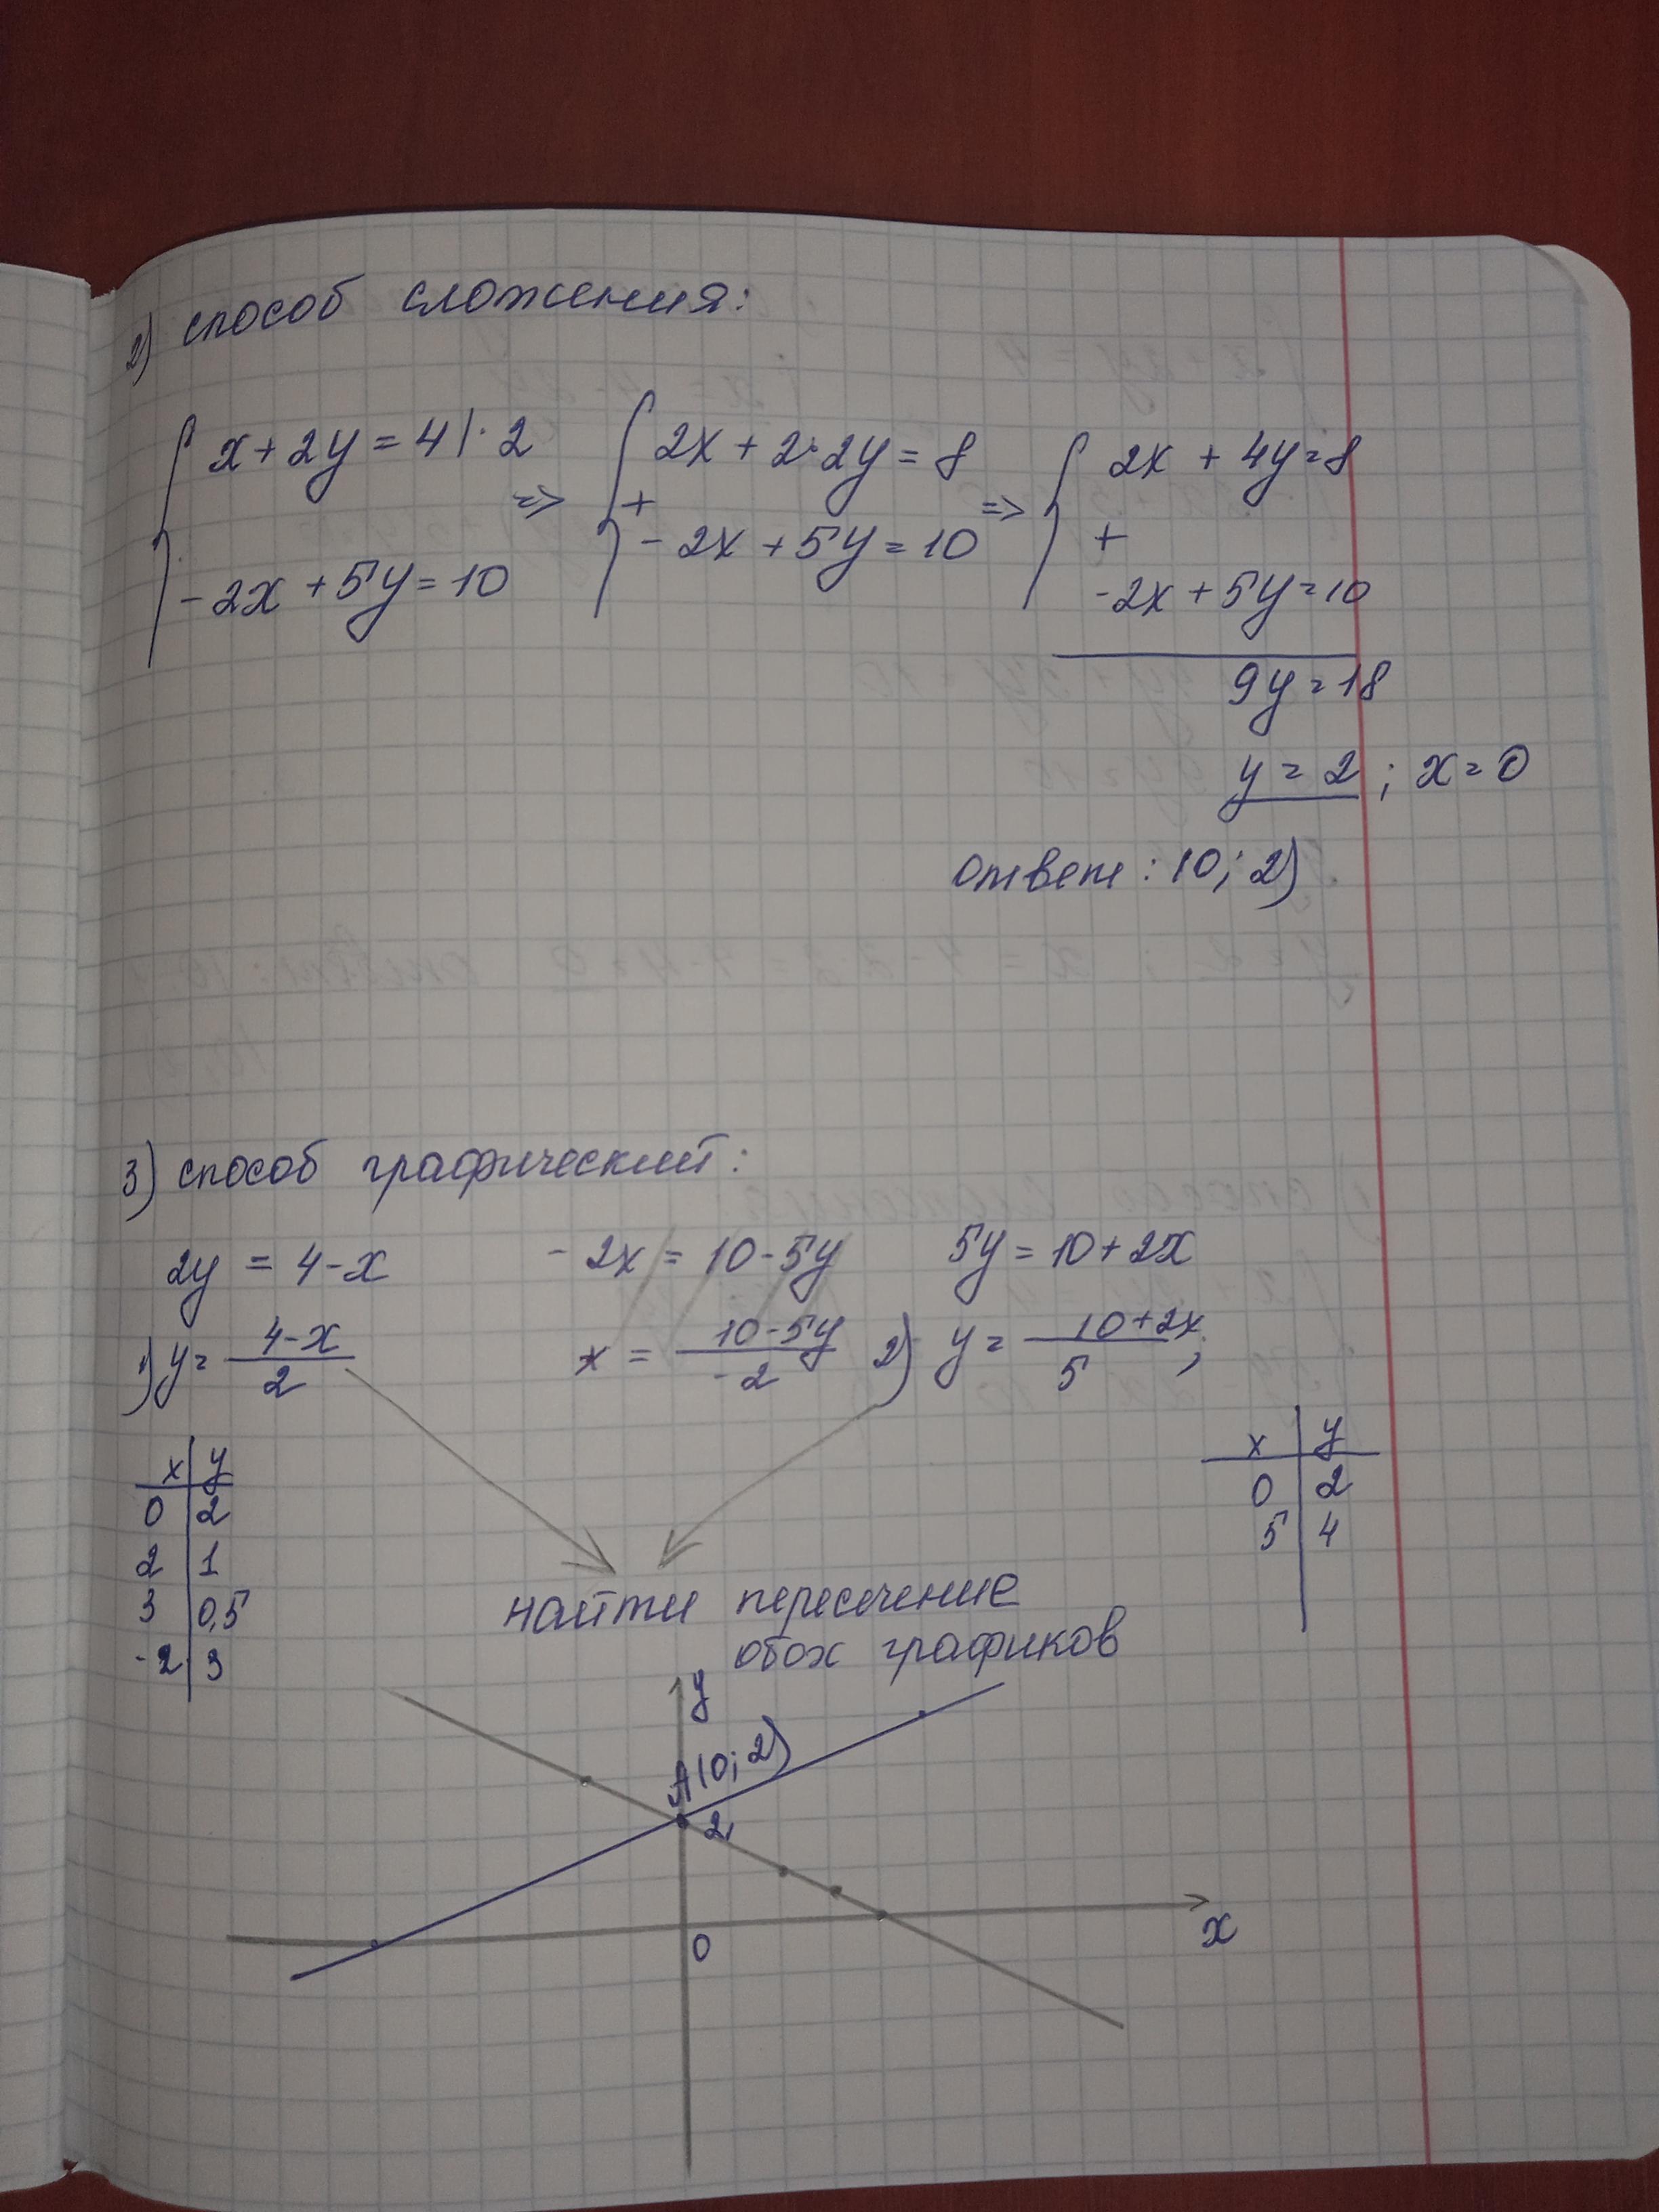 2) способ сложения:
{ x + 2y = 4 | · 2 => { 2x + 2·2y = 8 => { 2x + 4y = 8
+ +
- 2x + 5y = 10 - 2x + 5y = 10 -2x + 5y = 10
9y = 18
y = 2 ; x = 0
ответ : (0; 2)
3) способ графический:
2y = 4 - x - 2x = 10 - 5y 5y = 10 + 2x
1) y = 4-x / 2 x = 10-5y / -2 2) y = 10+2x / 5 ;
x | y x | y
0 | 2 0 | 2
2 | 1 5 | 4
3 | 0,5
-2 | 3
найти пересечение
обох графиков
y
A(0; 2)
2
0
x